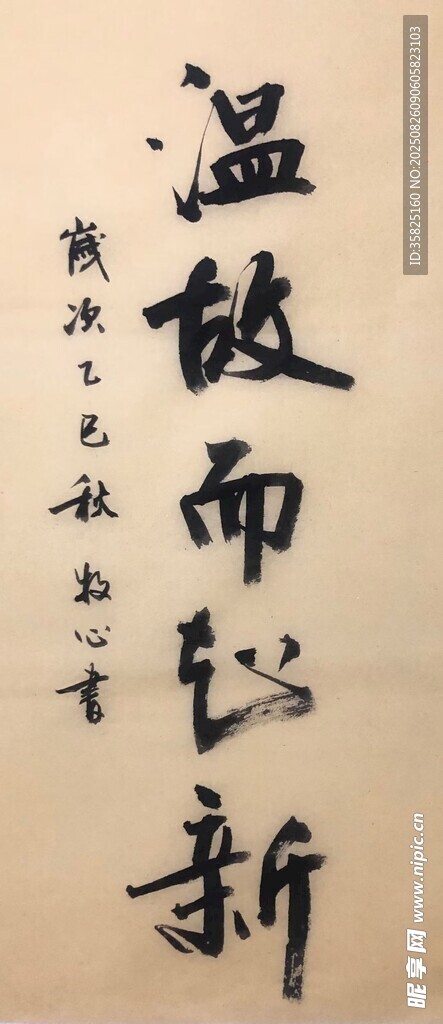 温故而知新
歲次乙巳秋 牧心書
ID:35825160 NO:20250826090605823103
昵享网 www.nipic.cn